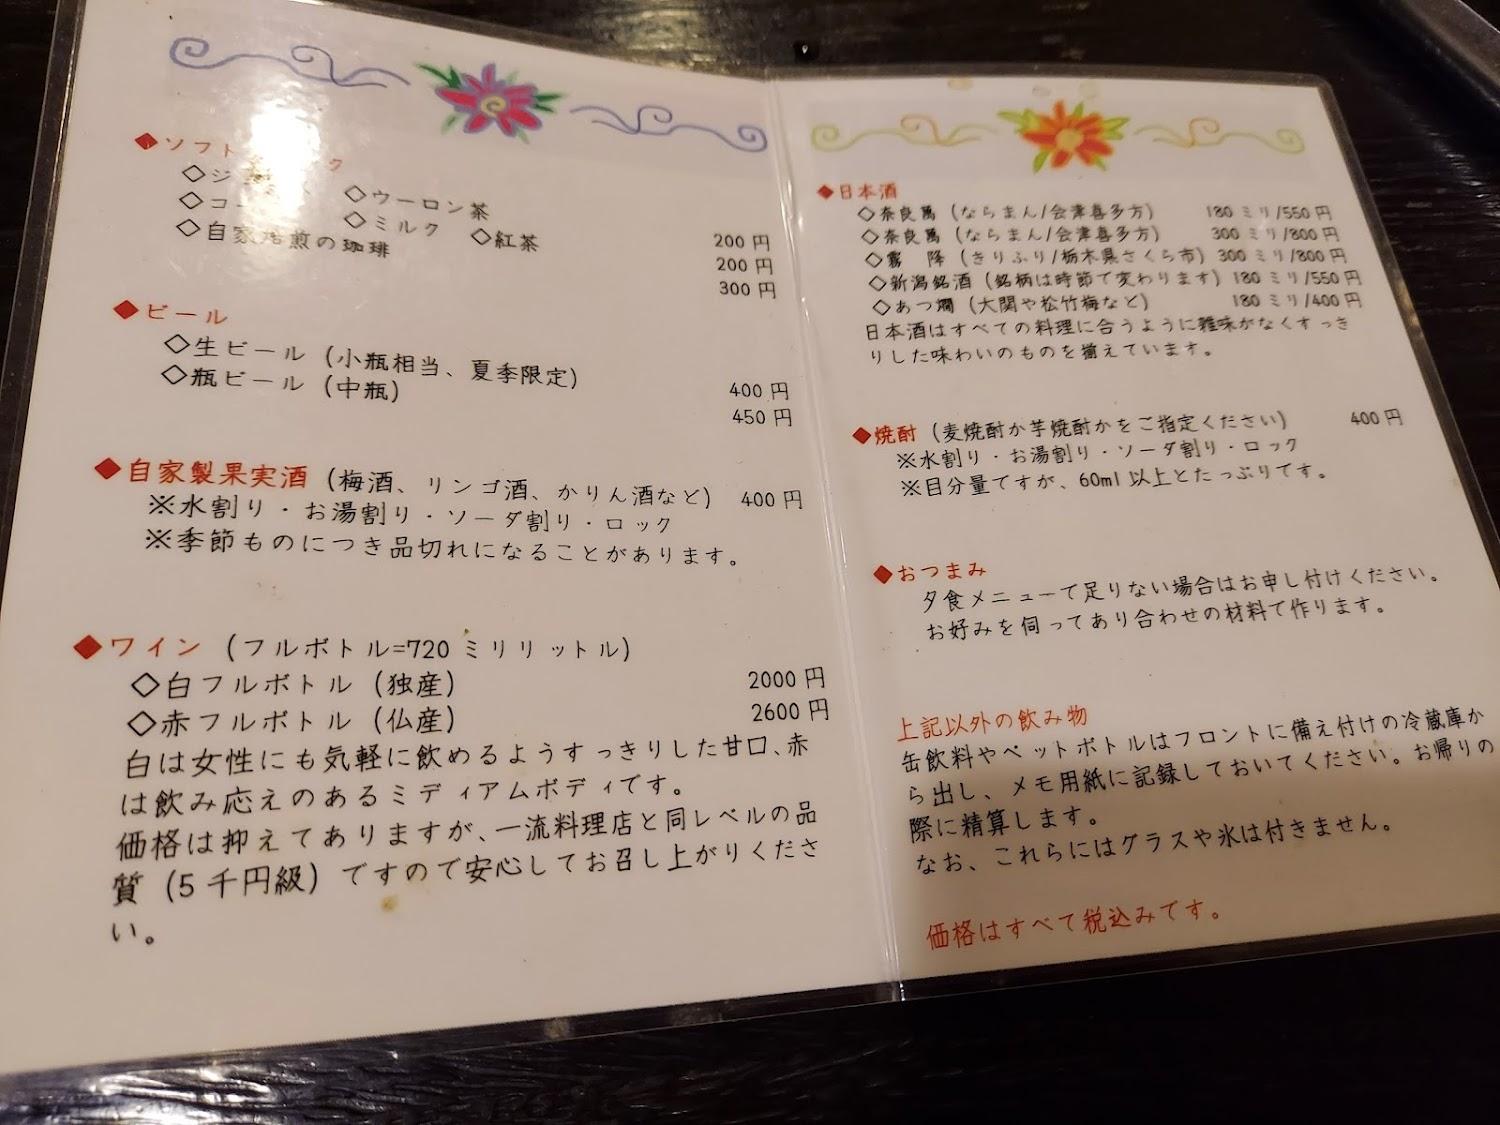 ◆ソフト
◇ジ ◇ウーロン茶 200 円
◇コー ◇ミルク ◇紅茶 200 円
◇自家焙煎の珈琲 300 円
◆ビール
◇生ビール (小瓶相当、夏季限定) 400 円
◇瓶ビール (中瓶) 450 円
◆自家製果実酒 (梅酒、リンゴ酒、かりん酒など) 400 円
※水割り・お湯割り・ソーダ割り・ロック
※季節ものにつき品切れになることがあります。
◆ワイン (フルボトル=720 ミリリットル)
◇白フルボトル (独産) 2000 円
◇赤フルボトル (仏産) 2600 円
白は女性にも気軽に飲めるようすっきりした甘口、赤
は飲み応えのあるミディアムボディです。
価格は抑えてありますが、一流料理店と同レベルの品
質 (5 千円級) ですので安心してお召し上がりくださ
い。
◆日本酒
◇奈良萬 (ならまん/会津喜多方) 180 ミリ/550 円
◇奈良萬 (ならまん/会津喜多方) 300 ミリ/800 円
◇霧　降 (きりふり/栃木県さくら市) 300 ミリ/800 円
◇新潟銘酒 (銘柄は時節で変わります) 180 ミリ/550 円
◇あつ燗 (大関や松竹梅など) 180 ミリ/400 円
日本酒はすべての料理に合うように雑味がなくすっき
りした味わいのものを揃えています。
◆焼酎 (麦焼酎か芋焼酎かをご指定ください) 400 円
※水割り・お湯割り・ソーダ割り・ロック
※目分量ですが、60ml 以上とたっぷりです。
◆おつまみ
夕食メニューで足りない場合はお申し付けください。
お好みを伺ってあり合わせの材料で作ります。
上記以外の飲み物
缶飲料やペットボトルはフロントに備え付けの冷蔵庫か
ら出し、メモ用紙に記録しておいてください。お帰りの
際に精算します。
なお、これらにはグラスや氷は付きません。
価格はすべて税込みです。